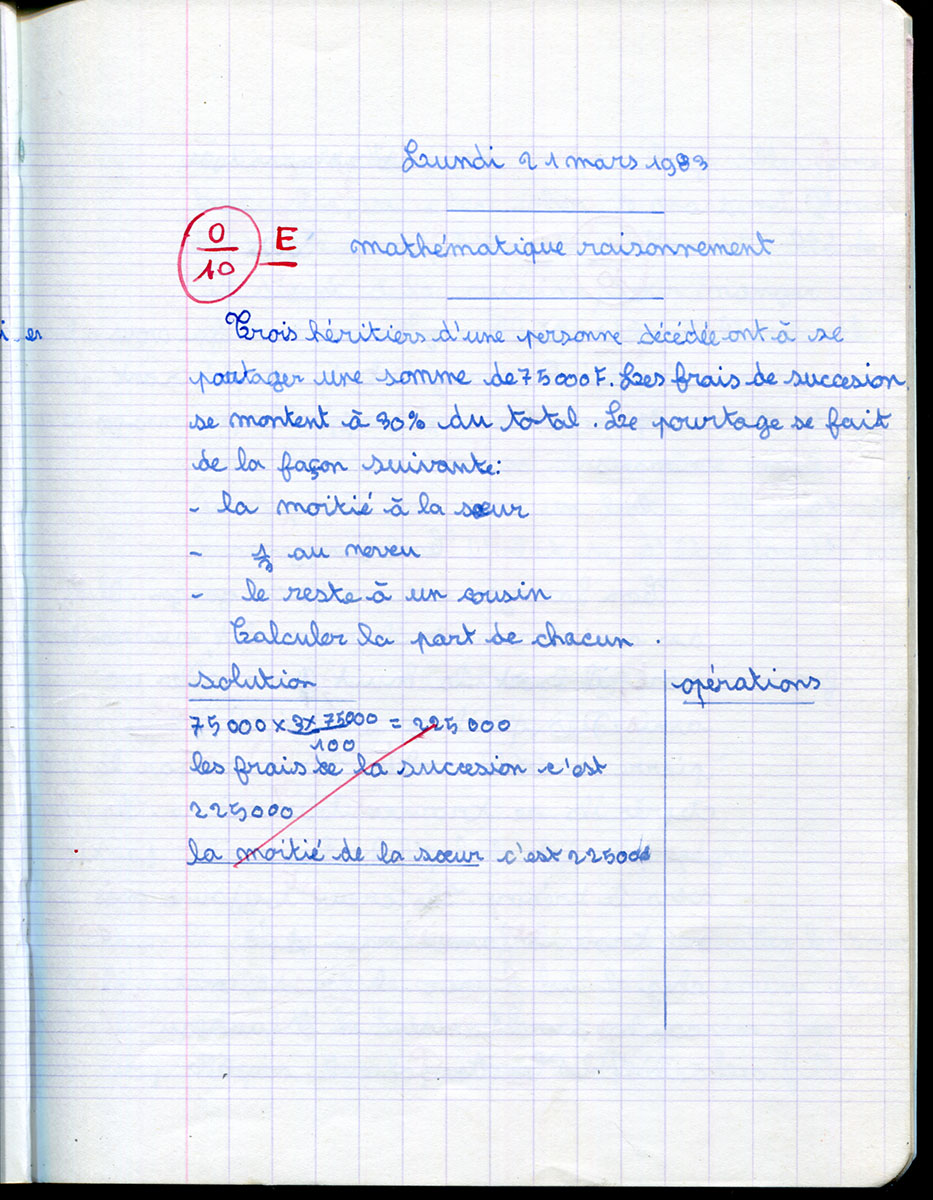 Lundi 21 mars 1983
0/10 E mathématique raisonnement
Trois héritiers d'une personne décédée ont à se
partager une somme de 75000F. Les frais de succesion
se montent à 30% du total. Le pourtage se fait
de la façon suivante:
- la moitié à la sœur
- 1/3 au neveu
- le reste à un cousin
Calculer la part de chacun.
solution
opérations
75000 × 3 × 75000 / 100 = 225000
les frais de la succesion c'est
225000
la moitié de la sœur c'est 22500